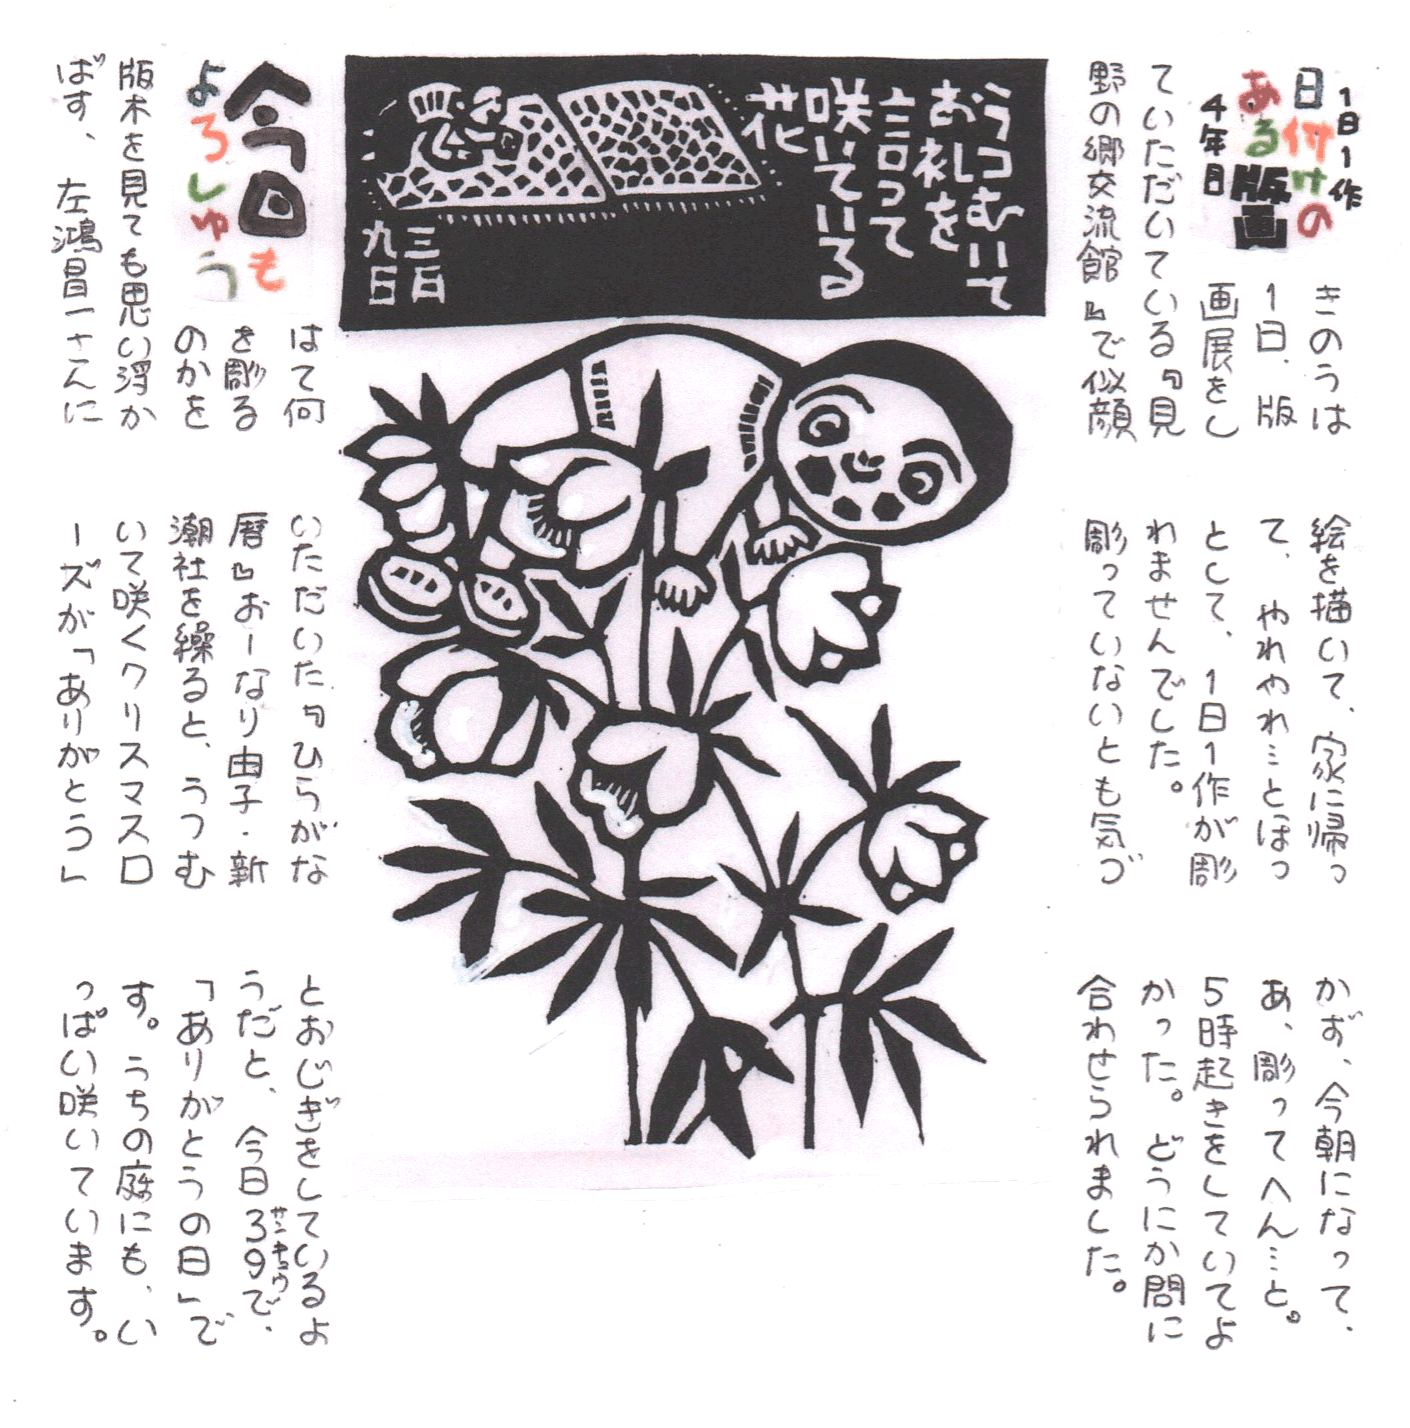 1日1作
日付けの
ある版画
4年目
きのうは
1日、版
画展をし
ていただいている『見
野の郷交流館』で似顔
絵を描いて、家に帰っ
て、やれやれ…とほっ
として、1日1作が彫
れませんでした。
彫っていないとも気づ
かず、今朝になって、
あ、彫ってへん…と。
5時起きをしていてよ
かった。どうにか間に
合わせられました。
うつむいて
お礼を
言って
咲いている
花
三月
九日
今日も
よろしゅう
はて何
を彫る
のかを
版木を見ても思い浮か
ばず、左鴻昌一さんに
いただいた『ひらがな
暦』おーなり由子・新
潮社を繰ると、うつむ
いて咲くクリスマスロ
ーズが「ありがとう」
とおじぎをしているよ
うだと、今日39で、
サンキュウ
「ありがとうの日」で
す。うちの庭にも、い
っぱい咲いています。